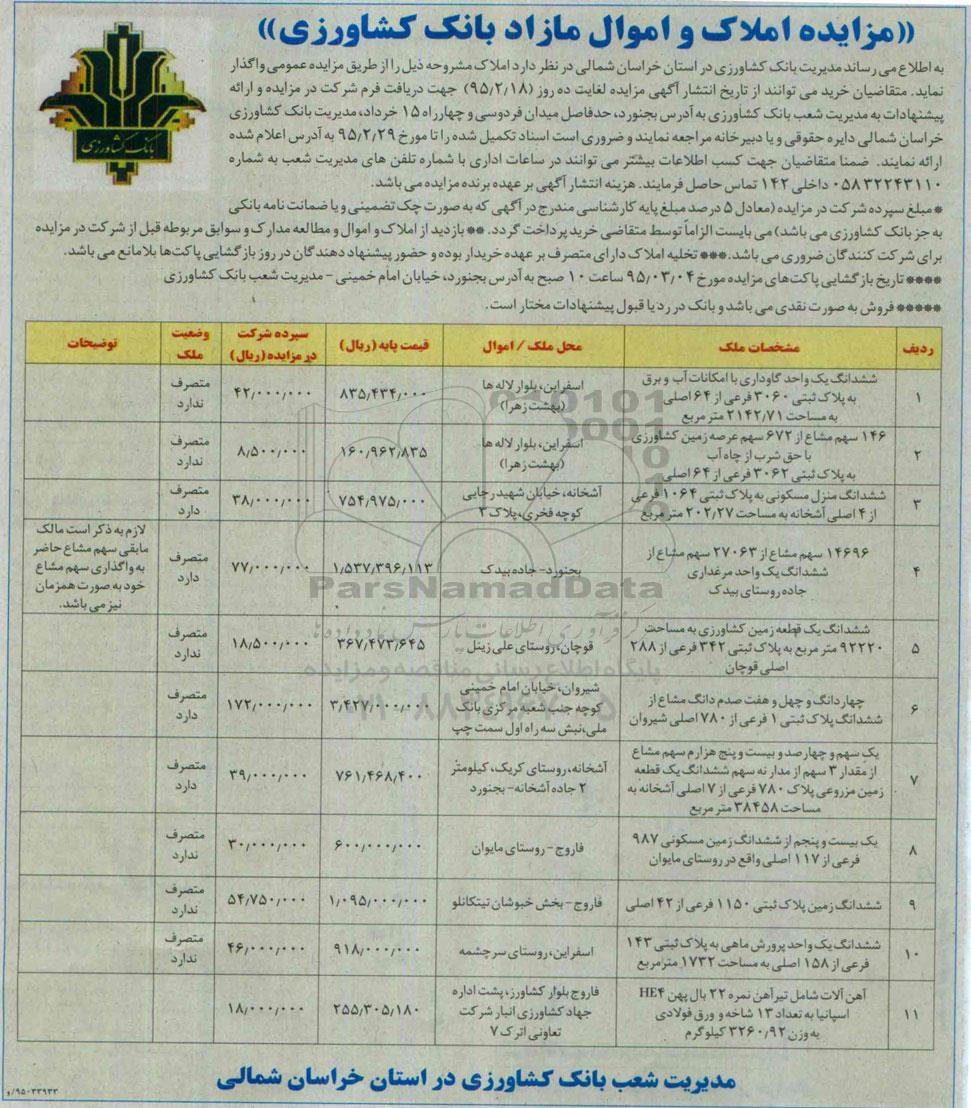 «مزایده املاک و اموال مازاد بانک کشاورزی»
بانک کشاورزی
به اطلاع می رساند مدیریت بانک کشاورزی در استان خراسان شمالی در نظر دارد املاک مشروحه ذیل را از طریق مزایده عمومی واگذار
نماید. متقاضیان خرید می توانند از تاریخ انتشار آگهی مزایده لغایت ده روز (۹۵/۲/۱۸) جهت دریافت فرم شرکت در مزایده و ارائه
پیشنهادات به مدیریت شعب بانک کشاورزی به آدرس بجنورد، حدفاصل میدان فردوسی و چهارراه ۱۵ خرداد، مدیریت بانک کشاورزی
خراسان شمالی دایره حقوقی و یا دبیرخانه مراجعه نمایند و ضروری است اسناد تکمیل شده را تا مورخ ۹۵/۲/۲۹ به آدرس اعلام شده
ارائه نمایند. ضمنا متقاضیان جهت کسب اطلاعات بیشتر می توانند در ساعات اداری با شماره تلفن های مدیریت شعب به شماره
۰۵۸۳۲۲۴۳۱۱۰ داخلی ۱۴۲ تماس حاصل فرمایند. هزینه انتشار آگهی بر عهده برنده مزایده می باشد.
*مبلغ سپرده شرکت در مزایده (معادل ۵ درصد مبلغ پایه کارشناسی مندرج در آگهی که به صورت چک تضمینی و یا ضمانت نامه بانکی
به جز بانک کشاورزی می باشد) می بایست الزاماً توسط متقاضی خرید پرداخت گردد. **بازدید از املاک و اموال و مطالعه مدارک و سوابق مربوطه قبل از شرکت در مزایده
برای شرکت کنندگان ضروری می باشد. ***تخلیه املاک دارای متصرف بر عهده خریدار بوده و حضور پیشنهاد دهندگان در روز بازگشایی پاکت‌ها بلامانع می باشد.
****تاریخ بازگشایی پاکت‌های مزایده مورخ ۹۵/۰۳/۰۴ ساعت ۱۰ صبح به آدرس بجنورد، خیابان امام خمینی - مدیریت شعب بانک کشاورزی
*****فروش به صورت نقدی می باشد و بانک در رد یا قبول پیشنهادات مختار است.
ردیف مشخصات ملک محل ملک / اموال قیمت پایه (ریال) سپرده شرکت در مزایده (ریال) وضعیت ملک توضیحات
۱ ششدانگ یک واحد گاوداری با امکانات آب و برق
به پلاک ثبتی ۳۰۶۰ فرعی از ۶۴ اصلی
به مساحت ۲۱۴۲/۷۱ متر مربع
اسفراین، بلوار لاله ها
(بهشت زهرا)
۸۳۵٫۴۳۴٫۰۰۰ ۴۲٫۰۰۰٫۰۰۰ متصرف ندارد
۲ ۱۴۶ سهم مشاع از ۶۷۲ سهم عرصه زمین کشاورزی
با حق شرب از چاه آب
به پلاک ثبتی ۳۰۶۲ فرعی از ۶۴ اصلی
اسفراین، بلوار لاله ها
(بهشت زهرا)
۱۶۰٫۹۶۲٫۸۳۵ ۸٫۵۰۰٫۰۰۰ متصرف ندارد
۳ ششدانگ منزل مسکونی به پلاک ثبتی ۱۰۶۴ فرعی
از ۴ اصلی آشخانه به مساحت ۲۰۲/۲۷ متر مربع
آشخانه، خیابان شهید رجایی
کوچه فخری، پلاک ۳
۷۵۴٫۹۷۵٫۰۰۰ ۳۸٫۰۰۰٫۰۰۰ متصرف دارد
۴ ۱۴۶۹۶ سهم مشاع از ۲۷۰۶۳ سهم مشاع از
ششدانگ یک واحد مرغداری
جاده روستای بیدک
بجنورد- جاده بیدک
۱٫۵۳۷٫۳۹۶٫۱۱۳ ۷۷٫۰۰۰٫۰۰۰ متصرف دارد
لازم به ذکر است مالک
مابقی سهم مشاع حاضر
به واگذاری سهم مشاع
خود به صورت همزمان
نیز می باشد.
۵ ششدانگ یک قطعه زمین کشاورزی به مساحت
۹۲۲۲۰ متر مربع به پلاک ثبتی ۳۴۲ فرعی از ۲۸۸
اصلی قوچان
قوچان، روستای علی زینل
۳۶۷٫۴۷۳٫۶۴۵ ۱۸٫۵۰۰٫۰۰۰ متصرف ندارد
۶ چهاردانگ و چهل و هفت صدم دانگ مشاع از
ششدانگ پلاک ثبتی ۱ فرعی از ۷۸۰ اصلی شیروان
شیروان، خیابان امام خمینی
کوچه جنب شعبه مرکزی بانک
ملی، نبش سه راه اول سمت چپ
۳٫۴۲۷٫۰۰۰٫۰۰۰ ۱۷۲٫۰۰۰٫۰۰۰ متصرف دارد
۷ یک سهم و چهار صد و بیست و پنج هزارم سهم مشاع
از مقدار ۳ سهم از مدار نه سهم ششدانگ یک قطعه
زمین مزروعی پلاک ۷۸۰ فرعی از ۷ اصلی آشخانه به
مساحت ۳۸۴۵۸ متر مربع
آشخانه، روستای کریک، کیلومتر
۲ جاده آشخانه- بجنورد
۷۶۱٫۴۶۸٫۴۰۰ ۳۹٫۰۰۰٫۰۰۰ متصرف دارد
۸ یک بیست و پنجم از ششدانگ زمین مسکونی ۹۸۷
فرعی از ۱۱۷ اصلی واقع در روستای مایوان
فاروج - روستای مایوان
۶۰۰٫۰۰۰٫۰۰۰ ۳۰٫۰۰۰٫۰۰۰ متصرف ندارد
۹ ششدانگ زمین پلاک ثبتی ۱۱۵۰ فرعی از ۴۲ اصلی
فاروج - بخش خبوشان تیتکانلو
۱٫۰۹۵٫۰۰۰٫۰۰۰ ۵۴٫۷۵۰٫۰۰۰ متصرف ندارد
۱۰ ششدانگ یک واحد پرورش ماهی به پلاک ثبتی ۱۴۳
فرعی از ۱۵۸ اصلی به مساحت ۱۷۳۲ متر مربع
اسفراین، روستای سرچشمه
۹۱۸٫۰۰۰٫۰۰۰ ۴۶٫۰۰۰٫۰۰۰ متصرف ندارد
۱۱ آهن آلات شامل تیرآهن نمره ۲۲ بال پهن HE۴
اسپانیا به تعداد ۱۳ شاخه و ورق فولادی
به وزن ۳۲۶۰/۹۲ کیلوگرم
فاروج بلوار کشاورز، پشت اداره
جهاد کشاورزی انبار شرکت
تعاونی اترک ۷
۲۵۵٫۳۰۵٫۱۸۰ ۱۸٫۰۰۰٫۰۰۰
ParsNamadData
پایگاه اطلاع رسانی مناقصه و مزایده
مدیریت شعب بانک کشاورزی در استان خراسان شمالی
۹۵۰۳۳۹۳۳/و